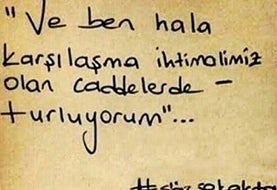 "Ve ben hala
karşılaşma ihtimalimiz
olan caddelerde -
turluyorum"...